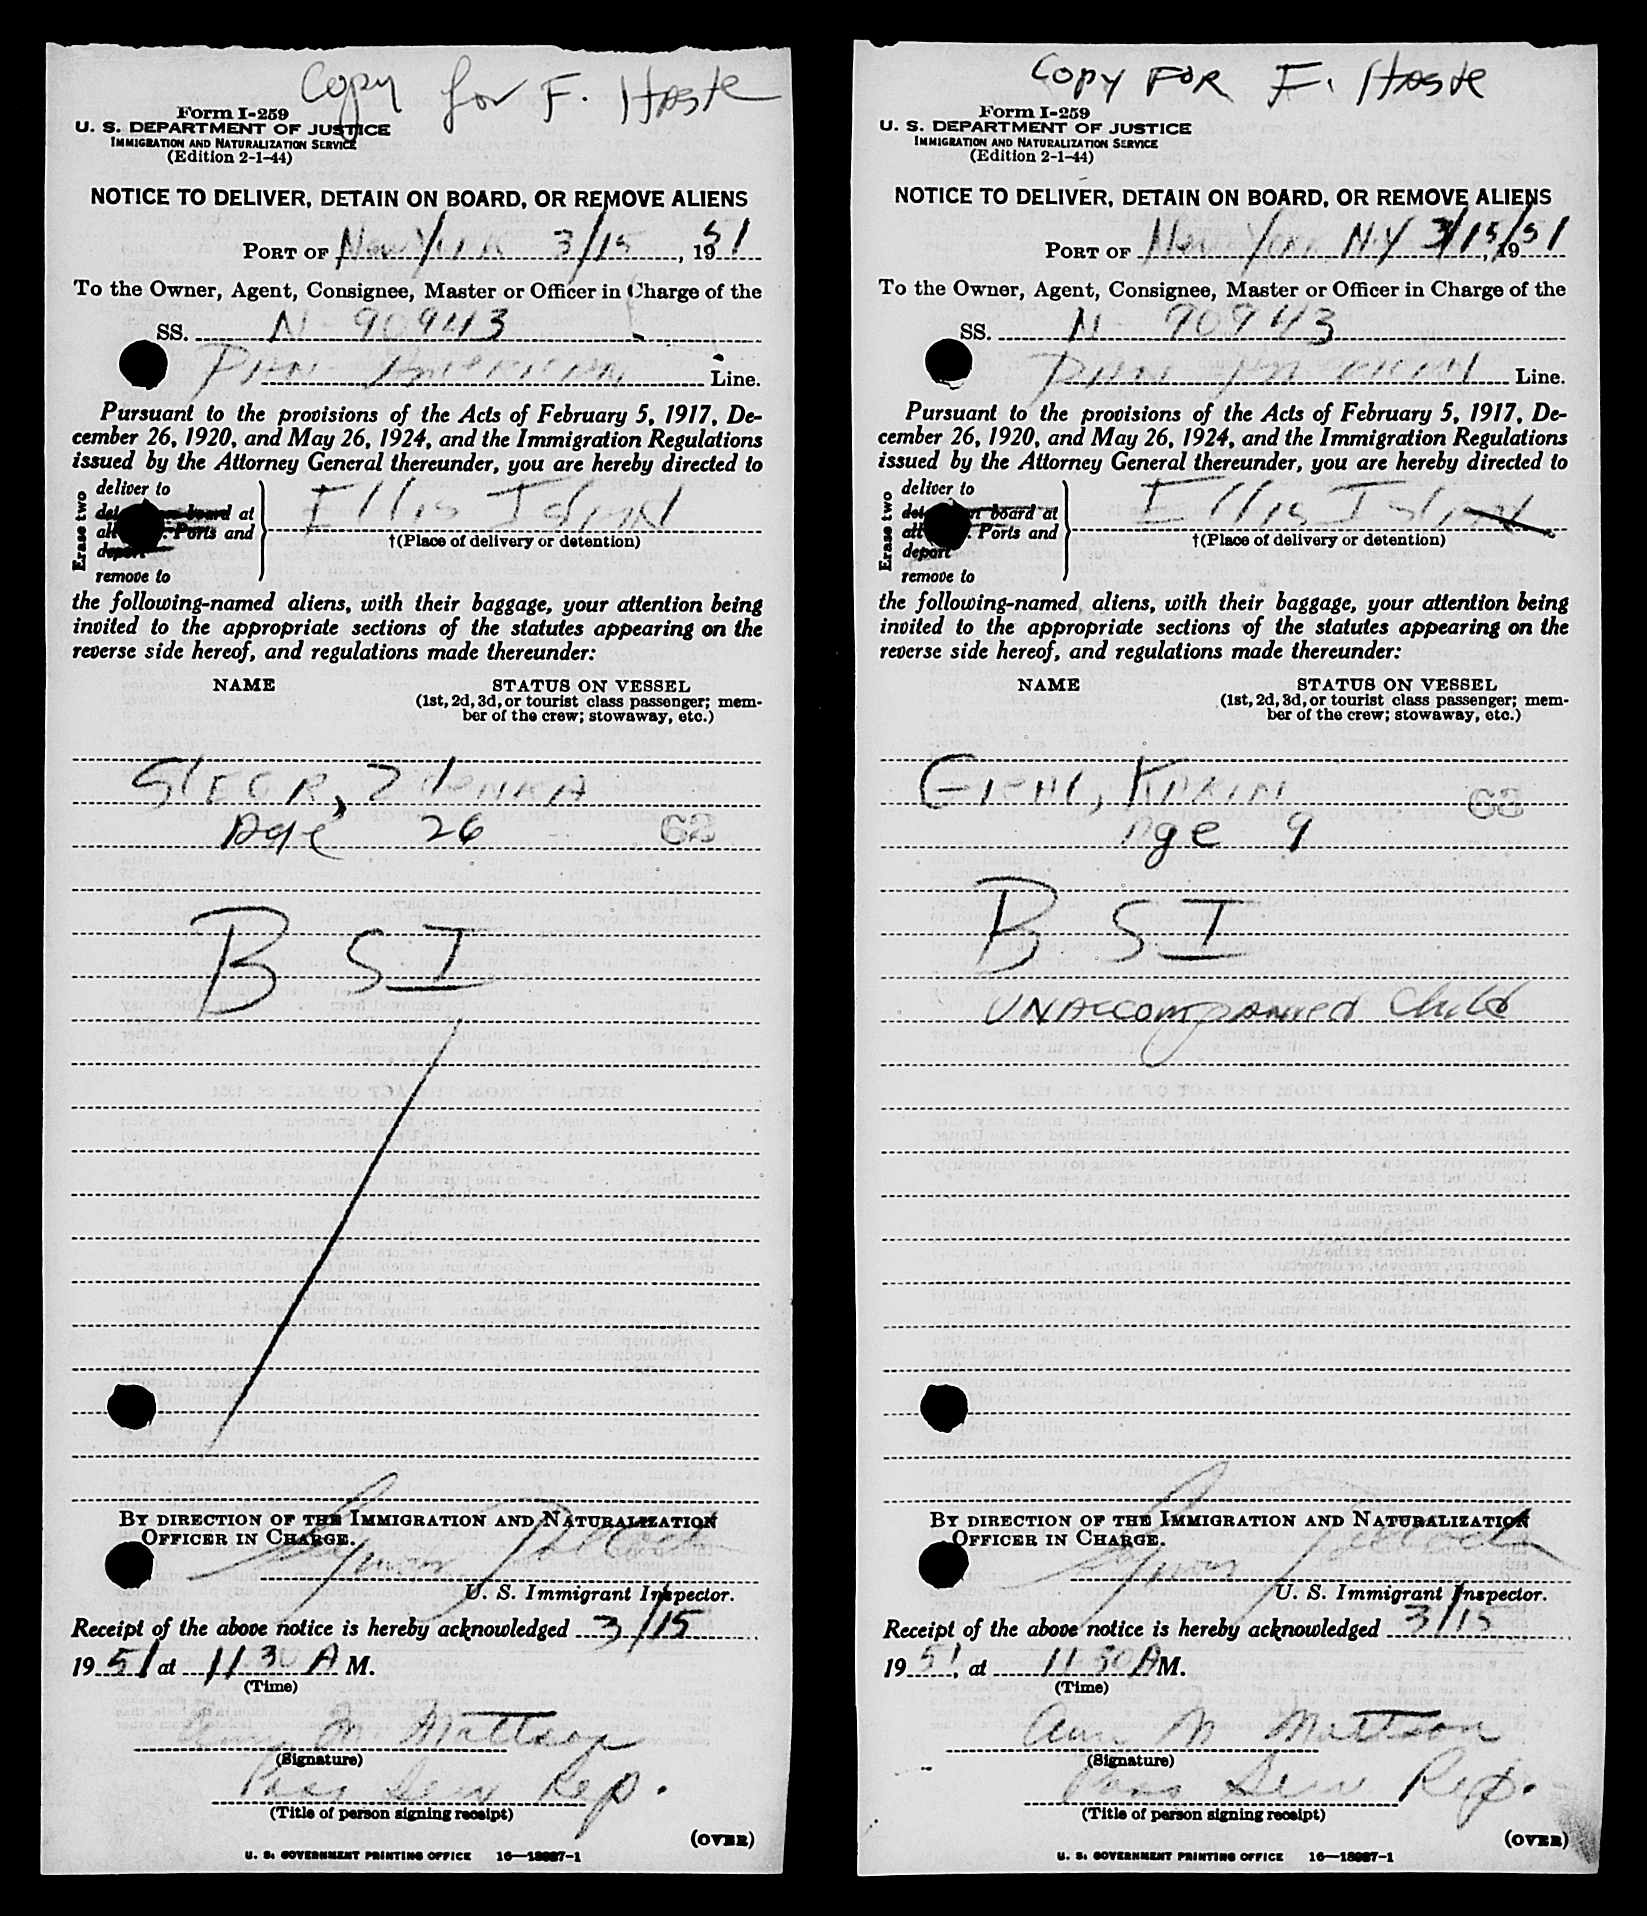 Copy for F. Haste
Form I-259
U. S. DEPARTMENT OF JUSTICE
IMMIGRATION AND NATURALIZATION SERVICE
(Edition 2-1-44)
NOTICE TO DELIVER, DETAIN ON BOARD, OR REMOVE ALIENS
PORT OF New York 3/15, 1951
To the Owner, Agent, Consignee, Master or Officer in Charge of the
SS. N-90943
Pan American Line.
Pursuant to the provisions of the Acts of February 5, 1917, De-
cember 26, 1920, and May 26, 1924, and the Immigration Regulations
issued by the Attorney General thereunder, you are hereby directed to
Erase two
deliver to
board at
all Ports and
deport
remove to
Ellis Island
†(Place of delivery or detention)
the following-named aliens, with their baggage, your attention being
invited to the appropriate sections of the statutes appearing on the
reverse side hereof, and regulations made thereunder:
NAME STATUS ON VESSEL
(1st, 2d, 3d, or tourist class passenger; mem-
ber of the crew; stowaway, etc.)
Age 26
BSI
BY DIRECTION OF THE IMMIGRATION AND NATURALIZATION
OFFICER IN CHARGE.
U. S. Immigrant Inspector.
Receipt of the above notice is hereby acknowledged 3/15
1951 at 11 30 A M.
(Time)
Ann M Mattson
(Signature)
Pass Serv Rep.
(Title of person signing receipt)
(OVER)
U. S. GOVERNMENT PRINTING OFFICE 16—18987-1
Copy FOR F. Haste
Form I-259
U. S. DEPARTMENT OF JUSTICE
IMMIGRATION AND NATURALIZATION SERVICE
(Edition 2-1-44)
NOTICE TO DELIVER, DETAIN ON BOARD, OR REMOVE ALIENS
PORT OF New York, N.Y 3/15/51, 19
To the Owner, Agent, Consignee, Master or Officer in Charge of the
SS. N-90943
Pan American Line.
Pursuant to the provisions of the Acts of February 5, 1917, De-
cember 26, 1920, and May 26, 1924, and the Immigration Regulations
issued by the Attorney General thereunder, you are hereby directed to
Erase two
deliver to
board at
all Ports and
deport
remove to
Ellis Island
†(Place of delivery or detention)
the following-named aliens, with their baggage, your attention being
invited to the appropriate sections of the statutes appearing on the
reverse side hereof, and regulations made thereunder:
NAME STATUS ON VESSEL
(1st, 2d, 3d, or tourist class passenger; mem-
ber of the crew; stowaway, etc.)
Karin 63
Age 9
BSI
UNAccompanied Child
BY DIRECTION OF THE IMMIGRATION AND NATURALIZATION
OFFICER IN CHARGE.
U. S. Immigrant Inspector.
Receipt of the above notice is hereby acknowledged 3/15
1951, at 11 30 A M.
(Time)
Ann M Mattson
(Signature)
Pass Serv Rep.
(Title of person signing receipt)
(OVER)
U. S. GOVERNMENT PRINTING OFFICE 16—18987-1